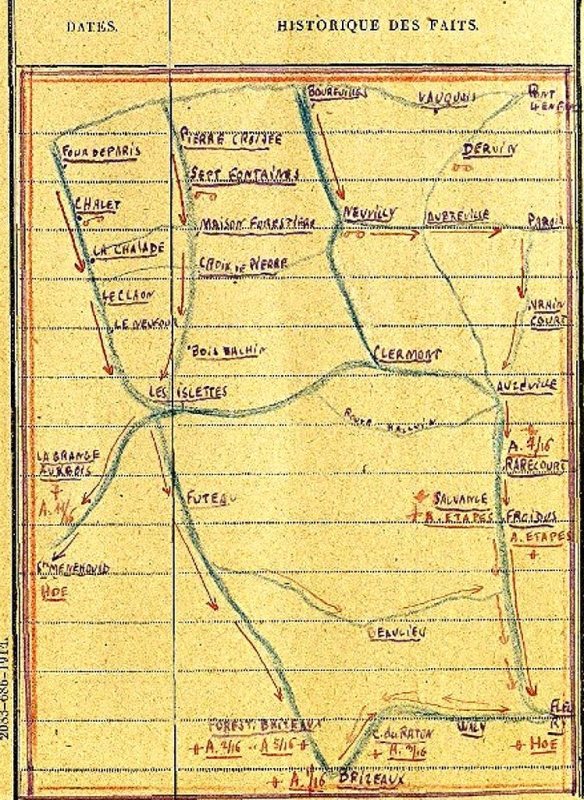 DATES.
HISTORIQUE DES FAITS.
BOUREUILLES
VAUQUOIS
PONT
4 ENF
FOUR DE PARIS
PIERRE CROISÉE
DERVIN
SEPT FONTAINES
CHALET
NEUVILLY
AUBREVILLE
PAROIS
MAISON FORESTIÈRE
LA CHALADE
CROIX DE PIERRE
LE CLAON
VRAIN
COURT
LE NEUFOUR
BOIS BACHIN
CLERMONT
LES ISLETTES
AUZÉVILLE
LA GRANGE
A. 4/16
RARECOURT
SALVANGE
A. ETAPES
FUTEAU
FROIDOS
A. ETAPES
STE MENEHOULD
HOE
BEAULIEU
FOREST. BRIZEAUX
A. 2/16
A 5/16
C. DU RATON
A. 3/16
WALY
FLEU
RY
HOE
A. 1/16
BRIZEAUX
2033-686-1914.